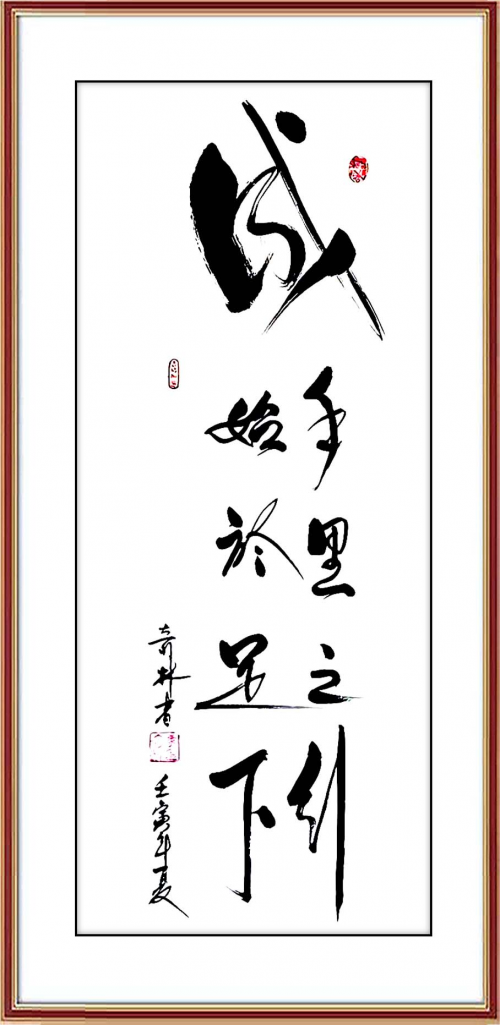 成
千里之行
始於足下
奇林书
壬寅年夏